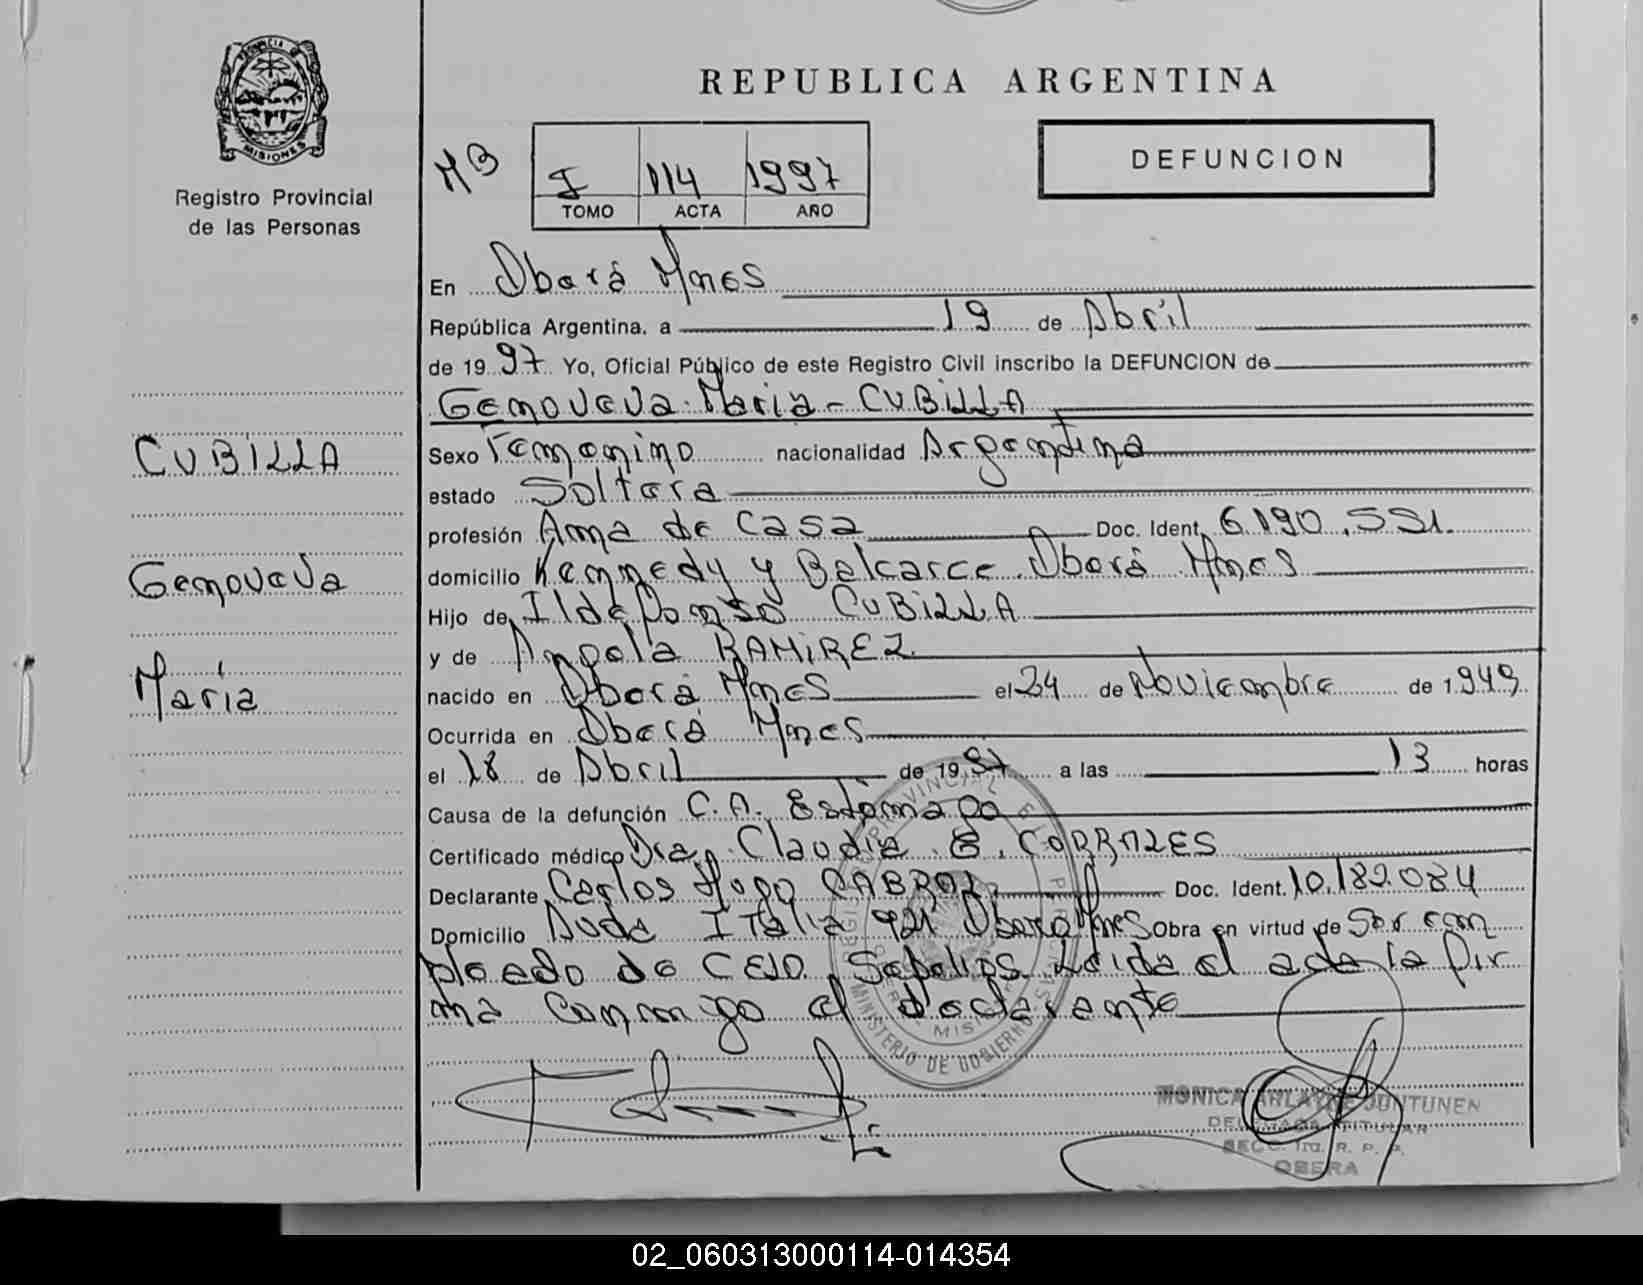 REPUBLICA ARGENTINA
PROVINCIA DE
MISIONES
Registro Provincial
de las Personas
MB
I 114 1997
TOMO ACTA AÑO
DEFUNCION
En Oberá Mnes
República Argentina, a 19 de Abril
de 1997 Yo, Oficial Público de este Registro Civil inscribo la DEFUNCION de
Genoveva María - CUBILLA
CUBILLA
Genoveva
María
Sexo Femenino nacionalidad Argentina
estado Soltera
profesión Ama de casa Doc. Ident. 6.190.551.
domicilio Kennedy y Balcarce Oberá Mnes
Hijo de Ildefonso CUBILLA
y de Angela RAMIREZ
nacido en Oberá Mnes el 24 de Noviembre de 1949
Ocurrida en Oberá Mnes
el 18 de Abril de 1997 a las 13 horas
Causa de la defunción C.A. Estómago
Certificado médico Dra. Claudia E. CORRALES
Declarante Carlos Hugo CABRAL Doc. Ident. 10.182.084
Domicilio Avda Italia 921 Oberá Mnes Obra en virtud de Ser em
pleado de Sepelios Leida el acta la fir
ma conmigo el declarante
MINISTERIO DE GOBIERNO
MONICA JUNTUNEN
TITULAR
SECC. 1ra. R. P. P.
OBERA
02_060313000114-014354